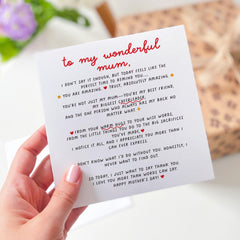 to my wonderful
mum,
I DON'T SAY IT ENOUGH, BUT TODAY FEELS LIKE THE
PERFECT TIME TO REMIND YOU...
YOU ARE AMAZING. TRULY, ABSOLUTELY AMAZING.
YOU'RE NOT JUST MY MUM—YOU'RE MY BEST FRIEND,
MY BIGGEST CHEERLEADER,
AND THE ONE PERSON WHO ALWAYS HAS MY BACK NO
MATTER WHAT.
FROM YOUR WARM HUGS TO YOUR WISE WORDS,
FROM THE LITTLE THINGS YOU DO TO THE BIG SACRIFICES
YOU'VE MADE,
I NOTICE IT ALL AND I APPRECIATE YOU MORE THAN I
CAN EVER EXPRESS.
I DON'T KNOW WHAT I'D DO WITHOUT YOU. HONESTLY, I
NEVER WANT TO FIND OUT.
SO TODAY, I JUST WANT TO SAY THANK YOU
I LOVE YOU MORE THAN WORDS CAN SAY.
HAPPY MOTHER'S DAY!